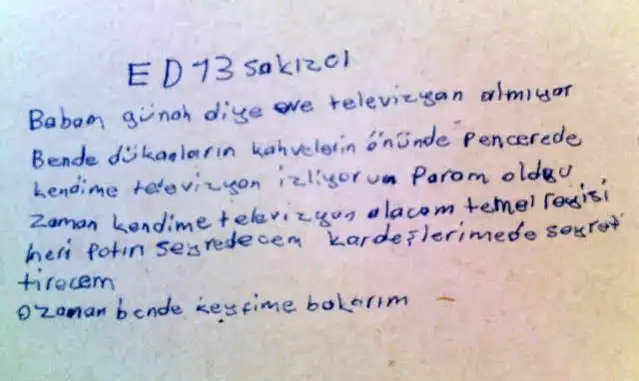 ED 13 sakızcı
Babam günah diye eve televizyan almıyor
Bende dükanların kahvelerin önünde Pencerede
kendime televizyon izliyorum Param olduğu
zaman kendime televizyon alacam temel reyisi
heri Potırı seyredecem kardeşlerimede seyret
tirecem
Ozaman bende keyfime bakarım